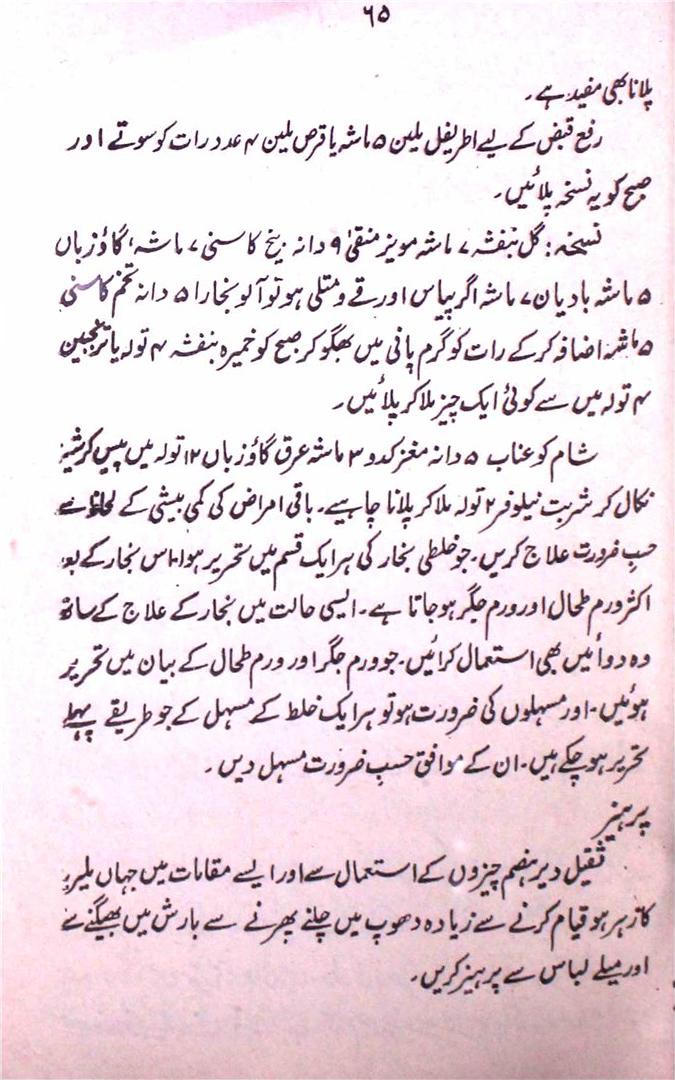 ۶۵
پلانا بھی مفید ہے۔
رفع قبض کے لیے اطریفل ملین ۵ ماشہ یا قرص ملین ۴ عدد رات کو سوتے اور
صبح کو یہ نسخہ پلائیں۔
نسخہ: گل بنفشہ ۷ ماشہ مویز منقیٰ ۹ دانہ بیخ کاسنی ۷ ماشہ، گاؤزباں
۵ ماشہ بادیان ۷ ماشہ اگر پیاس اور قے و متلی ہو تو آلو بخارا ۵ دانہ تخم کاسنی
۵ ماشہ اضافہ کر کے رات کو گرم پانی میں بھگو کر صبح کو خمیرہ بنفشہ ۴ تولہ یا ترنجبین
۴ تولہ میں سے کوئی ایک چیز ملا کر پلائیں۔
شام کو عناب ۵ دانہ مغز کدو ۳ ماشہ عرق گاؤزباں ۱۲ تولہ میں پیس کر شیرہ
نکال کر شربت نیلوفر ۲ تولہ ملا کر پلانا چاہیے۔ باقی امراض کی کمی بیشی کے لحاظ سے
حسبِ ضرورت علاج کریں۔ جو خلطی بخار کی ہر ایک قسم میں تحریر ہوا۔ اس بخار کے بعد
اکثر ورم طحال اور ورم جگر ہو جاتا ہے۔ ایسی حالت میں بخار کے علاج کے ساتھ
وہ دوائیں بھی استعمال کرائیں۔ جو ورم جگر اور ورم طحال کے بیان میں تحریر
ہوئیں۔ اور مسہلوں کی ضرورت ہو تو ہر ایک خلط کے مسہل کے جو طریقے پہلے
تحریر ہو چکے ہیں۔ ان کے موافق حسبِ ضرورت مسہل دیں۔
پرہیز
ثقیل دیر ہضم چیزوں کے استعمال سے اور ایسے مقامات میں جہاں ملیریا
کا زہر ہو قیام کرنے سے زیادہ دھوپ میں چلنے پھرنے سے بارش میں بھیگنے سے
اور میلے لباس سے پرہیز کریں۔